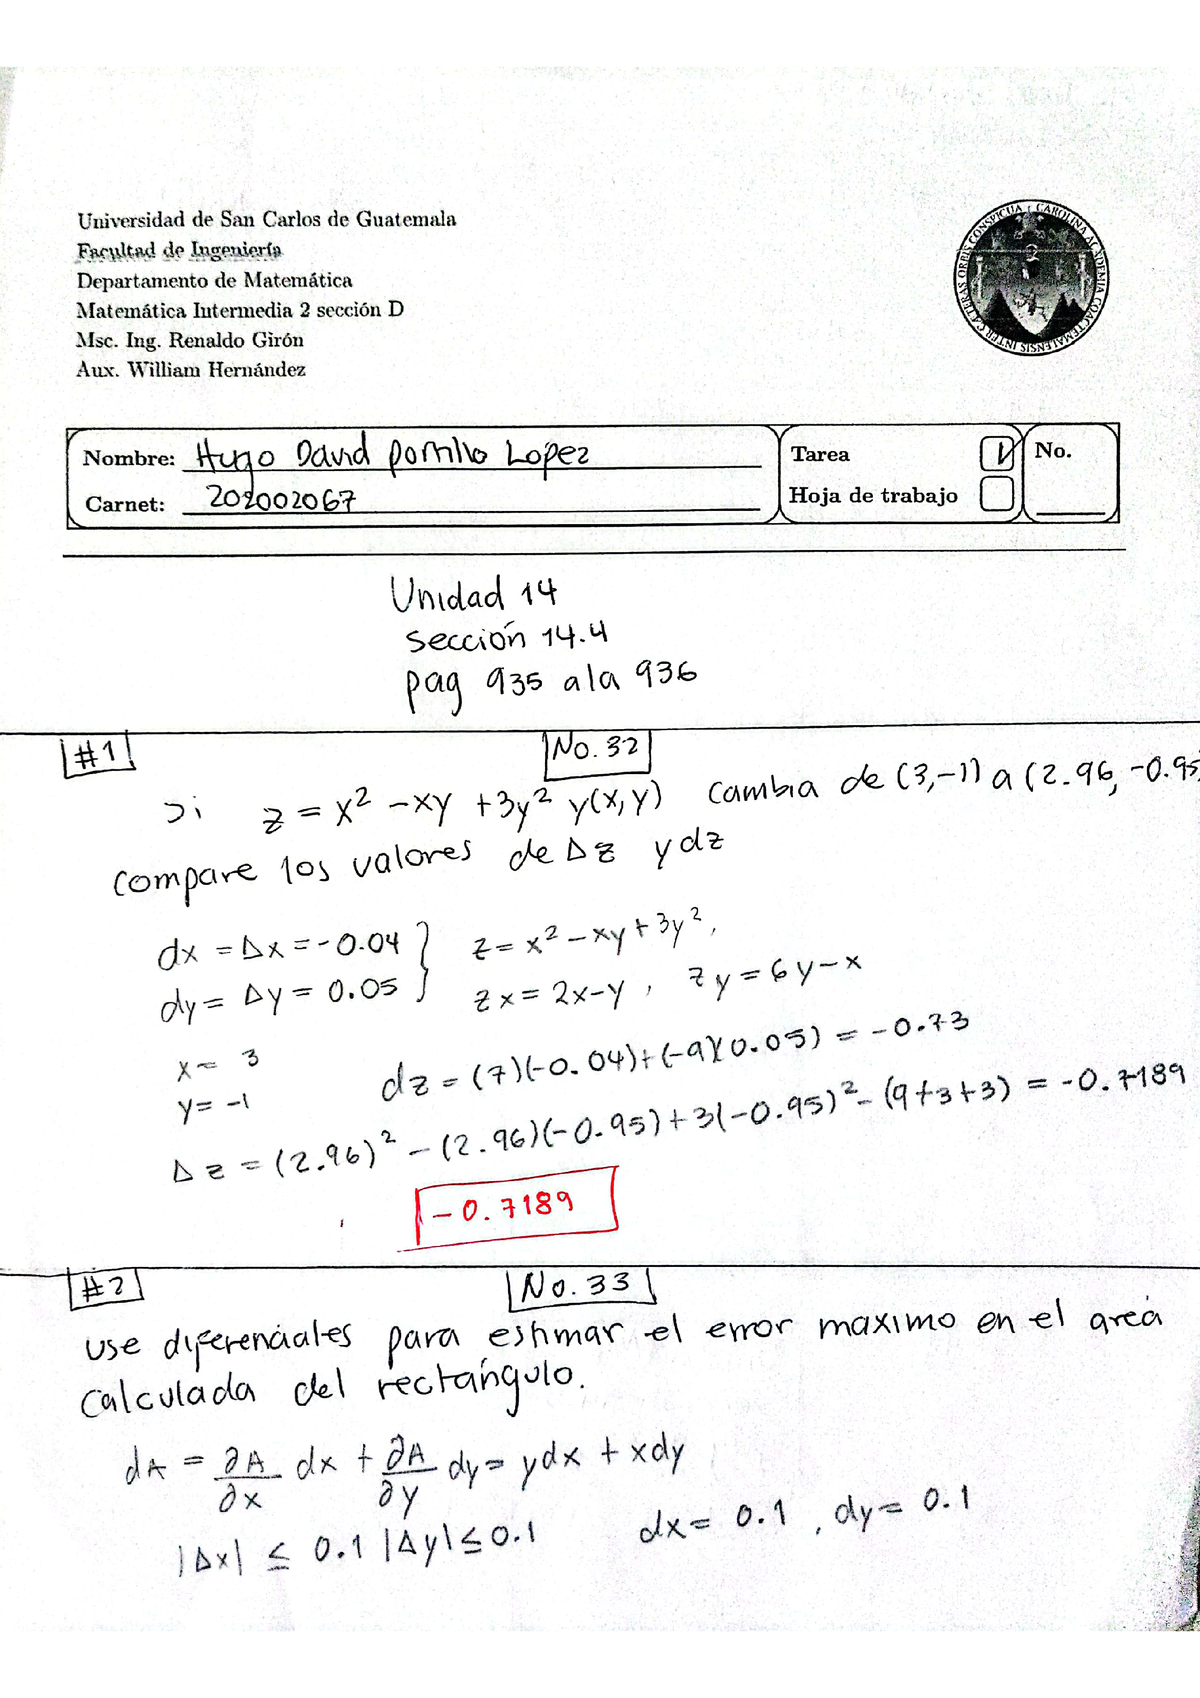 Universidad de San Carlos de Guatemala
Facultad de Ingeniería
Departamento de Matemática
Matemática Intermedia 2 sección D
Msc. Ing. Renaldo Girón
Aux. William Hernández
CONSPICUA CAROLINA ACADEMIA COACTEMALENSIS INTER CÆTERAS ORBIS
Nombre: Hugo David Portillo Lopez
Carnet: 202002067
Tarea
Hoja de trabajo
No.
Unidad 14
sección 14.4
pag 935 a la 936
#1 No. 32
Si z = x² - xy + 3y² y(x, y) cambia de (3,-1) a (2.96, -0.95)
compare los valores de Δz y dz
dx = Δx = -0.04 } z = x² - xy + 3y²,
dy = Δy = 0.05 zx = 2x-y , zy = 6y-x
x = 3
y = -1
dz = (7)(-0.04)+(-9)(0.05) = -0.73
Δz = (2.96)² - (2.96)(-0.95)+3(-0.95)² - (9+3+3) = -0.7189
-0.7189
#2 No. 33
use diferenciales para estimar el error maximo en el area
calculada del rectángulo.
dA = ∂A/∂x dx + ∂A/∂y dy = ydx + xdy
|Δx| ≤ 0.1 |Δy| ≤ 0.1 dx = 0.1 , dy = 0.1